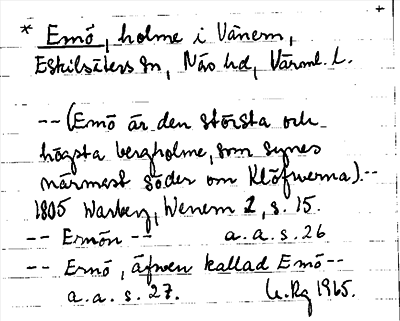 * Emö, holme i Vänern,
Eskilsäters sn, Näs hd, Värml. l.
-- (Emö är den största och
högsta bergholme, som synes
närmast söder om Klöfwerna).--
1805 Warberg, Wenern 2, s. 15.
-- Ernön -- a. a. s. 26
-- Ernö, äfwen kallad Emö --
a. a. s. 27. 1965.